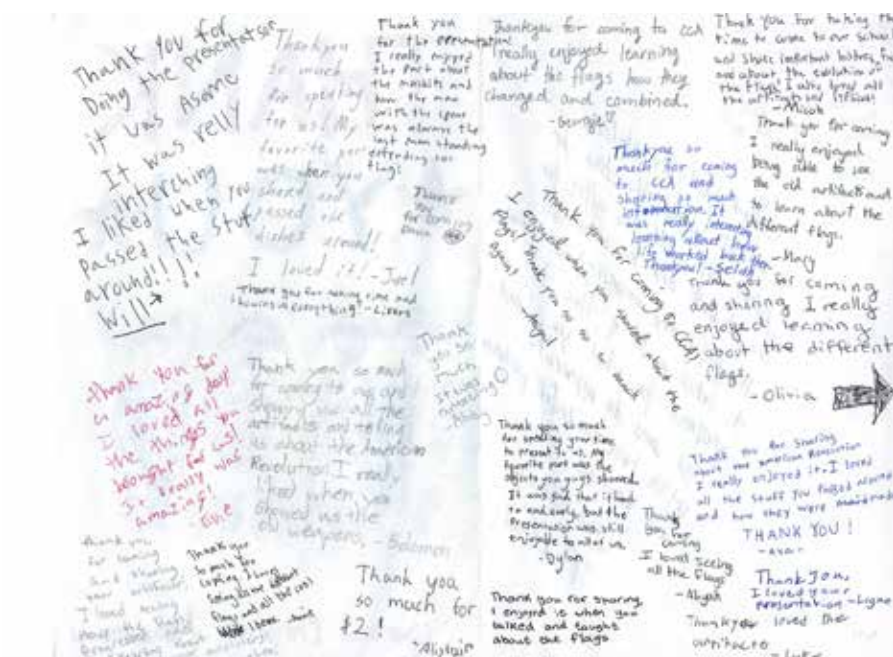 Thank you for
Doing the presentation
it was Asome
It was relly
interching
I liked when you
passed the stuf
around!!!!
Will
Thankyou
so much
for spending
for us! My
favorite part
was when you
shared and
passed the
dishes around!
I loved it! -Joel
Thank you for taking time and
showing us everything!
Thank you
for the presentation!
I really enjoyed
the part about
the muskits and
how the man
with the spear
was always the
last man standing
defending the
flag!
Thank
you
for coming
Thankyou for coming to CCA
I really enjoyed learning
about the flags how they
changed and combined.
-Georgie
Thank you for taking the
time to come to our school
and share important history
about the evolution of
the flags. I also loved all
the
-Micah
Thank you for coming
I really enjoyed
being able to see
the old
to learn about the
different flags.
-Mary
Thankyou so
much for coming
to CCA and
sharing so much
information. It
was really
learning about how
life worked back then
Thankyou! -Selah
Thank you for coming to CCA!
I enjoyed when you shared about the
flags! Thank you so so so much
again!
Thank you for coming
and sharing I really
enjoyed learning
about the different
flags.
-Olivia
Thank you for
an amazing day!
I loved all
the things you
brought for us!
It really was
amazing!
-Evie
Thank you so much
for coming to our
showing us all the
artifacts and telling
us about the American
Revolution. I really
liked when you
showed us the
old weapons, -Solomon
Thank
you so
much
It was
amazing
Thank you so much
for spending your time
to present to us. My
favorite part was the
objects you guys showed.
It was sad that it had
to end early, but the
presentation was still
enjoyable to all of us.
-Dylan
Thank
you for
coming
I loved seeing
all the flags
-Aliyah
Thank you for sharing
about the American Revolution
I really enjoyed it. I loved
all the stuff you passed around
and how they were
THANK YOU!
-ava-
Thank you
for coming
and sharing
your artifacts.
I loved seeing
how the flags
Thank you
so much for
flags and all the cool
Thank you
so much for
$2!
-Alistair
Thank you for sharing,
I enjoyed is when you
talked and taught
about the flags
Thank You,
I loved your
presentation
Thankyou loved the
-Luke